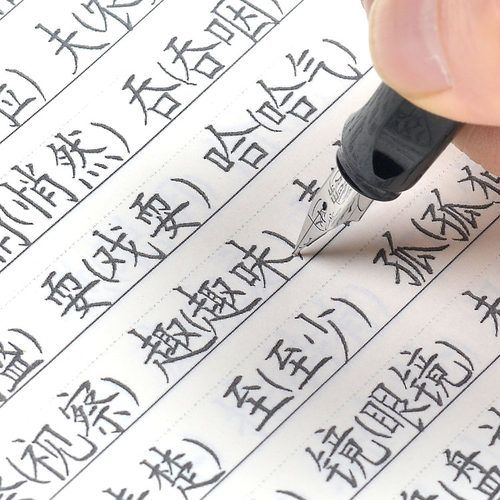 夫(
(悄然) 吞(吞咽)
耍(戏耍) 哈(哈气)
(视察) 趣(趣味)
楚) 至(至少) 孤(孤
镜(眼镜)